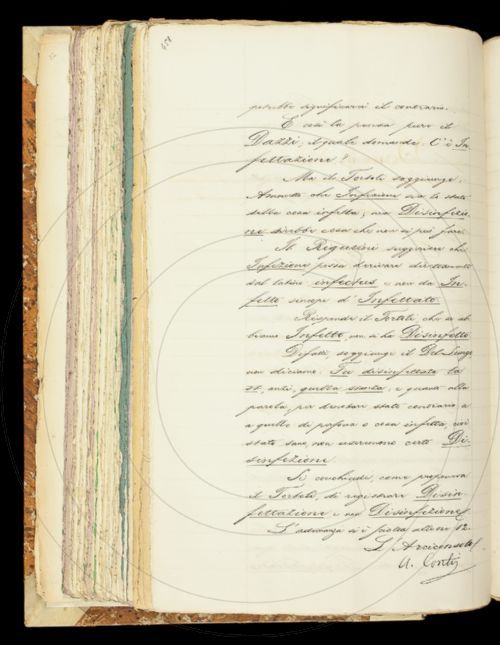 potrebbe significarsi il contrario.
E così la pensa pure il
Dazzi, il quale domanda: C'è In-
fettazione?
Ma il Tortoli soggiunge.
Ammesso che Infezione sia lo stato
della cosa infetta, ma Disinfezio-
ne sarebbe cosa che non si può
Il Rigutini suggerisce che
Infezione possa derivare direttamente
dal latino infectus e non da In-
fetto sincope d'Infettato.
Risponde il Tortoli che se ab-
biamo Infetto, non si ha Disinfetto
Difatti, soggiunge il Del Lungo
non diciamo: disinfettata la
anzi, quella stanza, e quanto alla
parola, per denotare stato contrario a
a quello di persona o cosa infetta,
stato sano, non useremmo certo Di-
sinfezione.
Si conchiude, come proponeva
il Tortoli, di registrare Disin-
fettazione e non Disinfezione.
L'adunanza si è sciolta alle ore 12.
L'Arciconsolo
A. Conti